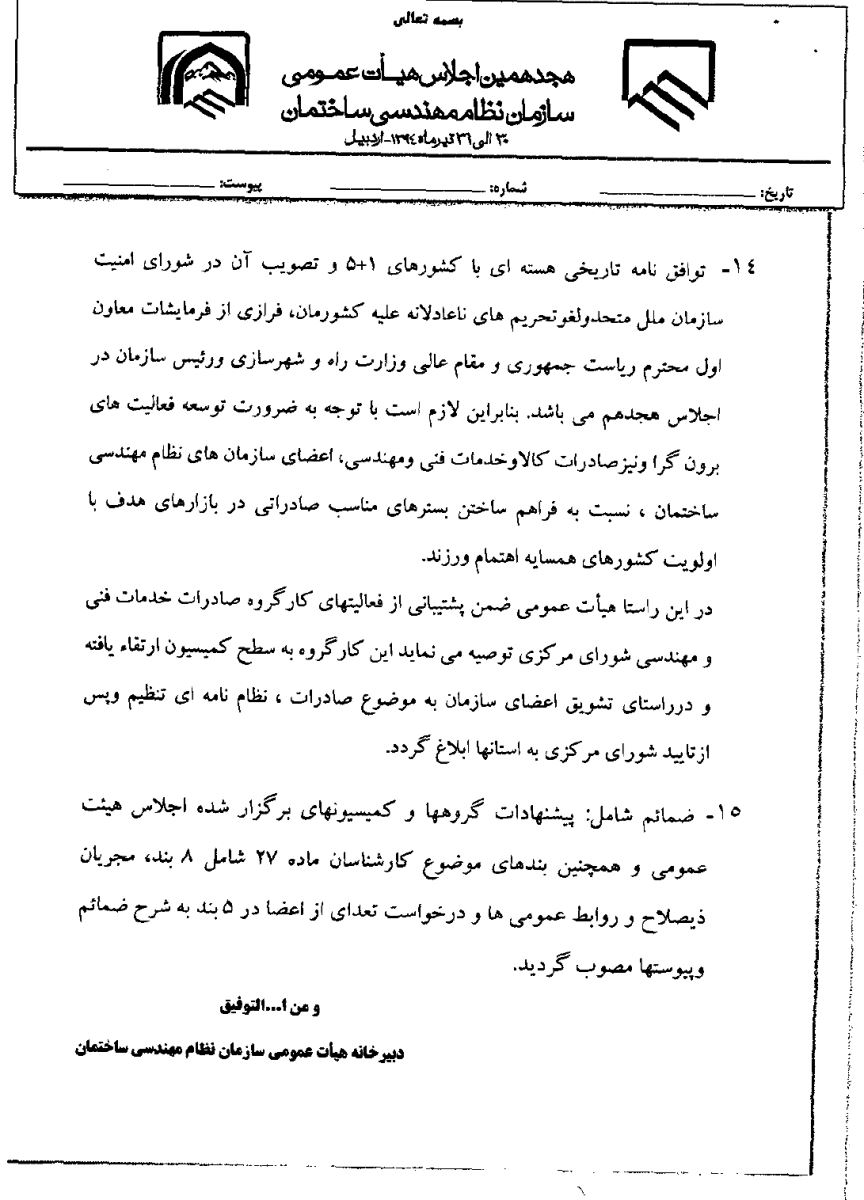 بسمه تعالی
هجدهمین اجلاس هیأت عمومی
سازمان نظام مهندسی ساختمان
۳۰ الی ۳۱ تیرماه ۱۳۹۴-اردبیل
تاریخ: شماره: پیوست:
۱۴- توافق نامه تاریخی هسته ای با کشورهای ۱+۵ و تصویب آن در شورای امنیت
سازمان ملل متحدولغوتحریم های ناعادلانه علیه کشورمان، فرازی از فرمایشات معاون
اول محترم ریاست جمهوری و مقام عالی وزارت راه و شهرسازی ورئیس سازمان در
اجلاس هجدهم می باشد. بنابراین لازم است با توجه به ضرورت توسعه فعالیت های
برون گرا ونیزصادرات کالاوخدمات فنی ومهندسی، اعضای سازمان های نظام مهندسی
ساختمان ، نسبت به فراهم ساختن بسترهای مناسب صادراتی در بازارهای هدف با
اولویت کشورهای همسایه اهتمام ورزند.
در این راستا هیأت عمومی ضمن پشتیبانی از فعالیتهای کارگروه صادرات خدمات فنی
و مهندسی شورای مرکزی توصیه می نماید این کارگروه به سطح کمیسیون ارتقاء یافته
و درراستای تشویق اعضای سازمان به موضوع صادرات ، نظام نامه ای تنظیم وپس
ازتایید شورای مرکزی به استانها ابلاغ گردد.
۱۵- ضمائم شامل: پیشنهادات گروهها و کمیسیونهای برگزار شده اجلاس هیئت
عمومی و همچنین بندهای موضوع کارشناسان ماده ۲۷ شامل ۸ بند، مجریان
ذیصلاح و روابط عمومی ها و درخواست تعدای از اعضا در ۵ بند به شرح ضمائم
وپیوستها مصوب گردید.
و من ا...التوفیق
دبیرخانه هیأت عمومی سازمان نظام مهندسی ساختمان